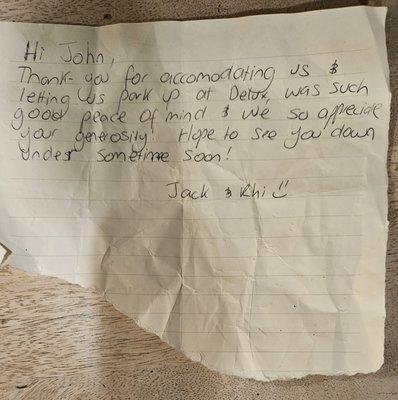 Hi John,
Thank-you for accomodating us &
letting us park up at Detox, was such
good peace of mind & we so appreciate
your generosity! Hope to see you down
under sometime soon!
Jack & Khi ☺